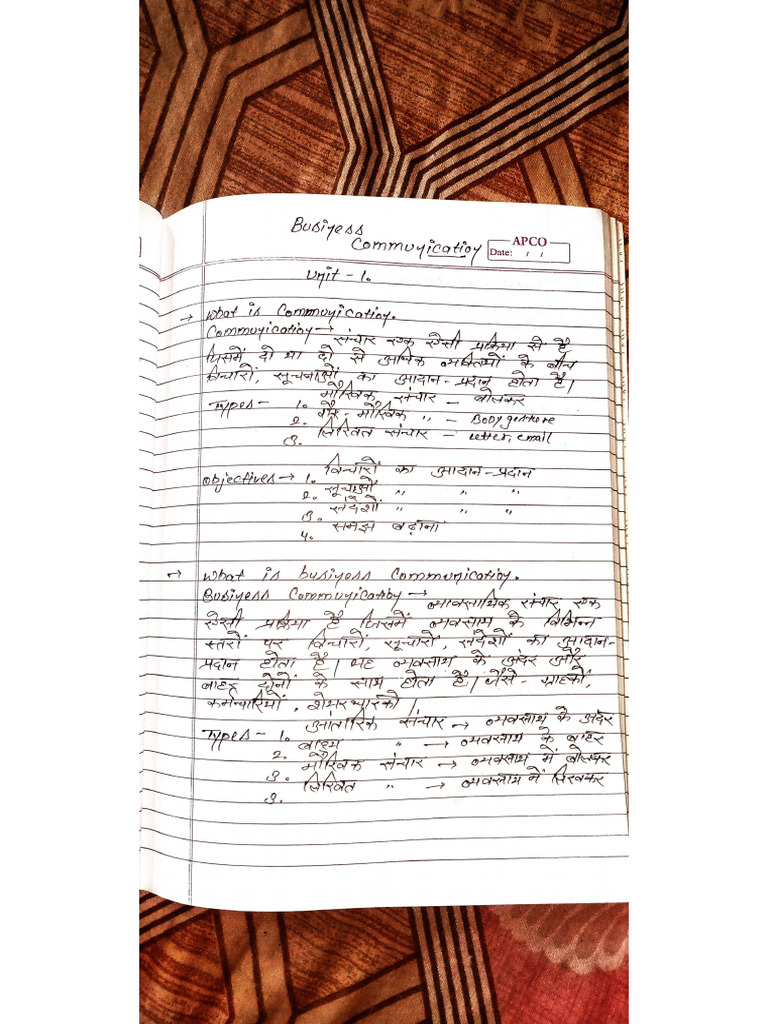 Business
Communication
APCO
Date:
Unit - 1.
→ What is Communication.
Communication →
संचार एक ऐसी प्रक्रिया से है
जिसमें दो या दो से अधिक व्यक्तियों के बीच
विचारों, सूचनाओं का आदान-प्रदान होता है।
Types - 1. मौखिक संचार - बोलकर
2. गैर-मौखिक " - Body, gesture
3. लिखित संचार - letter, email
Objectives → 1. विचारों का आदान-प्रदान
2. सूचाओं " " "
3. संदेशों " " "
4. समझ बढ़ाना
→ What is business Communication.
Business Communication → व्यावसायिक संचार एक
ऐसी प्रक्रिया है जिसमें व्यवसाय के विभिन्न
स्तरों पर विचारों, सूचारों, संदेशों का आदान-
प्रदान होता है। यह व्यवसाय के अंदर और
बाहर दोनों के साथ होता है। जैसे - ग्राहकों,
कर्मचारियों, शेयरधारकों।
Types - 1. आंतारिक संचार → व्यवसाय के अंदर
2. बाह्य " → व्यवसाय के बाहर
3. मौखिक संचार → व्यवसाय में बोलकर
3. लिखित " → व्यवसाय में लिखकर